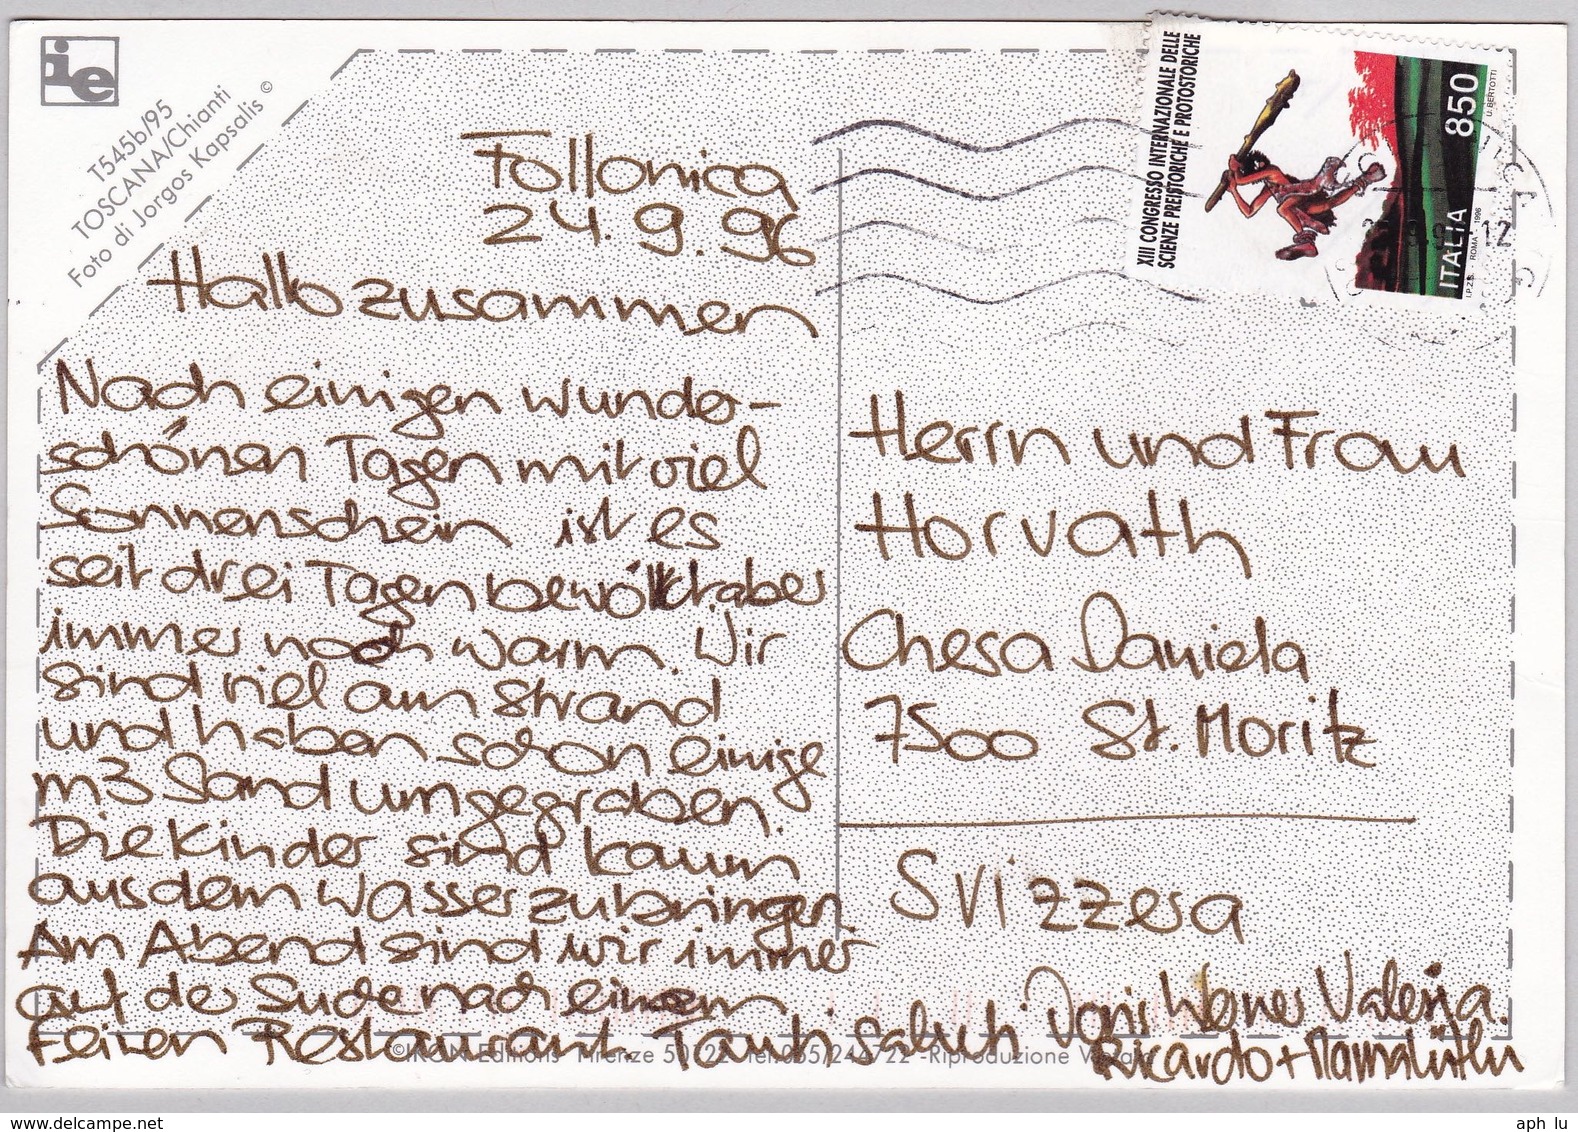 ie
T545b/95
TOSCANA/Chianti
Foto di Jorgos Kapsalis ©
XIII CONGRESSO INTERNAZIONALE DELLE
SCIENZE PREISTORICHE E PROTOSTORICHE
ITALIA 850
I.P.Z.S. - ROMA 1996
U. BERTOTTI
12
Follonica
24.9.96
Hallo zusammen
Nach einigen wunder-
schönen Tagen mit viel
Sonnenschein ist es
seit drei Tagen bewölkt aber
immer noch warm. Wir
sind viel am Strand
und haben schon einige
m3 Sand umgegraben.
Die Kinder sind kaum
aus dem Wasser zu bringen.
Am Abend sind wir immer
auf der Suche nach einem
feinen Restaurant.
Herrn und Frau
Horvath
Chesa Daniela
7500 St. Moritz
Svizzera
Werner Valeria
Ricardo +
© IKON Editions Firenze 50122 Tel. 055/244722 - Riproduzione Vietata
www.delcampe.net
aph lu